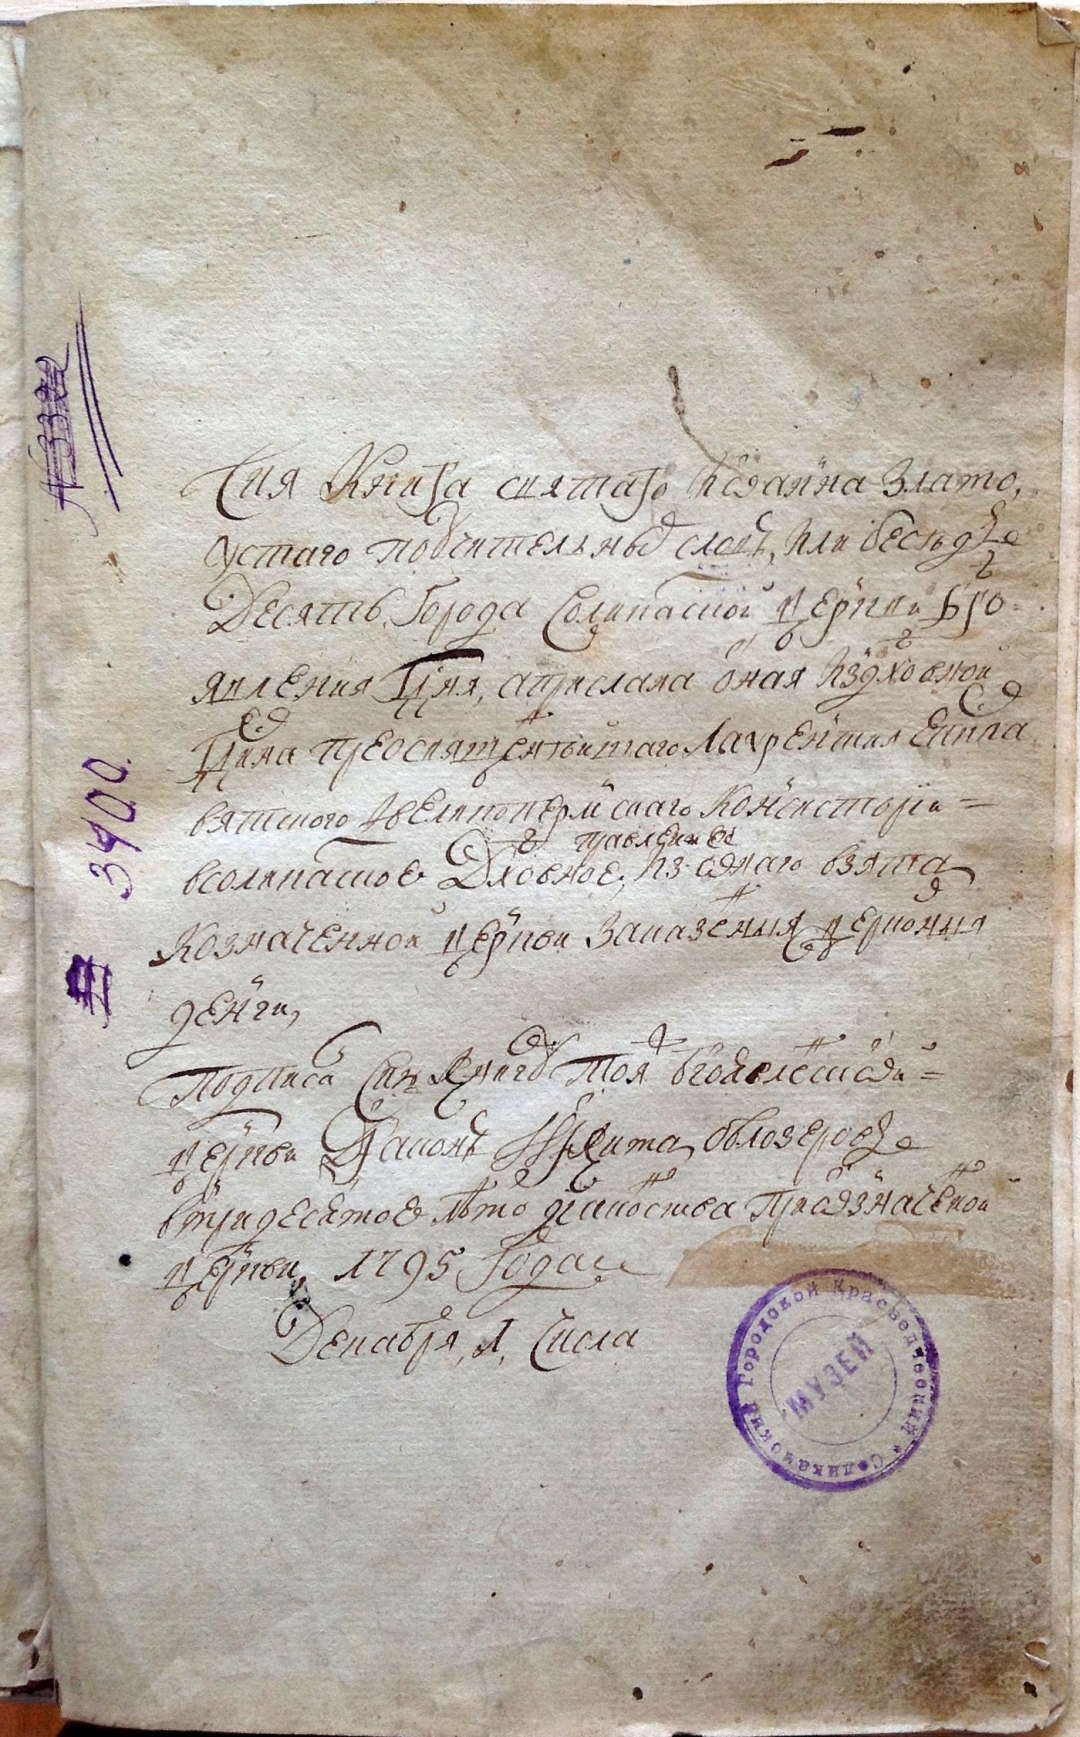 Сия Книга святаго Иоанна Злато,
устаго поучительныхъ словъ, или бесѣдъ
Десять, Города Соликамской церкви Бго=
явления Гдня, а прислана оная изъ духовной
Гдина преосвященнѣйшаго Лаврентия Еппа
вятского и великопермскаго Консистории=
правление
в соликамское Дховное, из онаго взята
к означенной церкви за казенныя церковныя
денги,
Подписа сию Книгу тоя Богоявленской=
церкви Диаконъ Никита
в тридесятое лѣто диаконства при означенной
церкви 1795 Года
Декабря, 1, Числа
3400.
Соликамский Городской Краеведческий
МУЗЕЙ